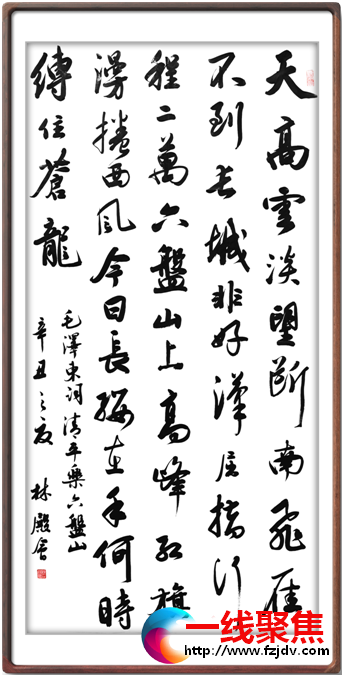 天高雲淡望斷南飛雁
不到长城非好漢屈指行
程二萬六盤山上高峰紅旗
漫捲西風今日長纓在手何時
縛住蒼龍
毛澤東詞清平樂六盤山
辛丑之夏 林殿會
一线聚焦
http://www.fzjdv.com